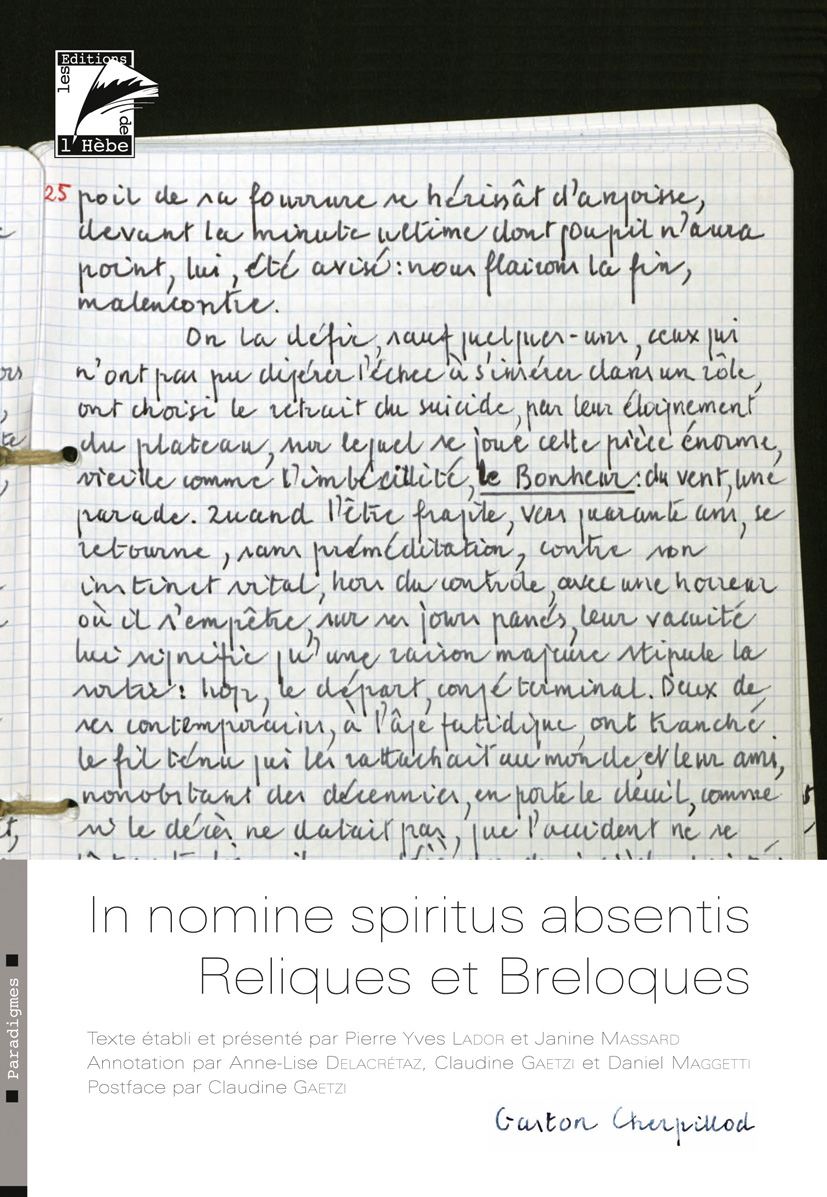 les
Editions
de
l'Hèbe
25 poil de sa fourrure se hérissât d'angoisse,
devant la minute ultime dont goupil n'aura
point, lui, été avisé : nous flairons la fin,
malencontre.
On la défie, sauf quelques-uns, ceux qui
n'ont pas pu digérer l'échec à s'insérer dans un rôle,
ont choisi le retrait du suicide, par leur éloignement
du plateau, sur lequel se joue cette pièce énorme,
vieille comme l'imbécillité, le Bonheur : du vent, une
parade. Quand l'être fragile, vers quarante ans, se
retourne, sans préméditation, contre son
instinct vital, hors du contrôle, avec une horreur
où il s'empêtre, sur ses jours passés, leur vacuité
lui signifie qu'une raison majeure stipule la
sortie : hop, le départ, congé terminal. Deux de
ses contemporains, à l'âge fatidique, ont tranché
le fil ténu qui les rattachait au monde, et leur ami,
nonobstant des décennies, en porte le deuil, comme
si le décès ne datait pas, que l'accident ne se
In nomine spiritus absentis
Reliques et Breloques
Texte établi et présenté par Pierre Yves LADOR et Janine MASSARD
Annotation par Anne-Lise DELACRÉTAZ, Claudine GAETZI et Daniel MAGGETTI
Postface par Claudine GAETZI
Gaston Cherpillod
Paradigmes